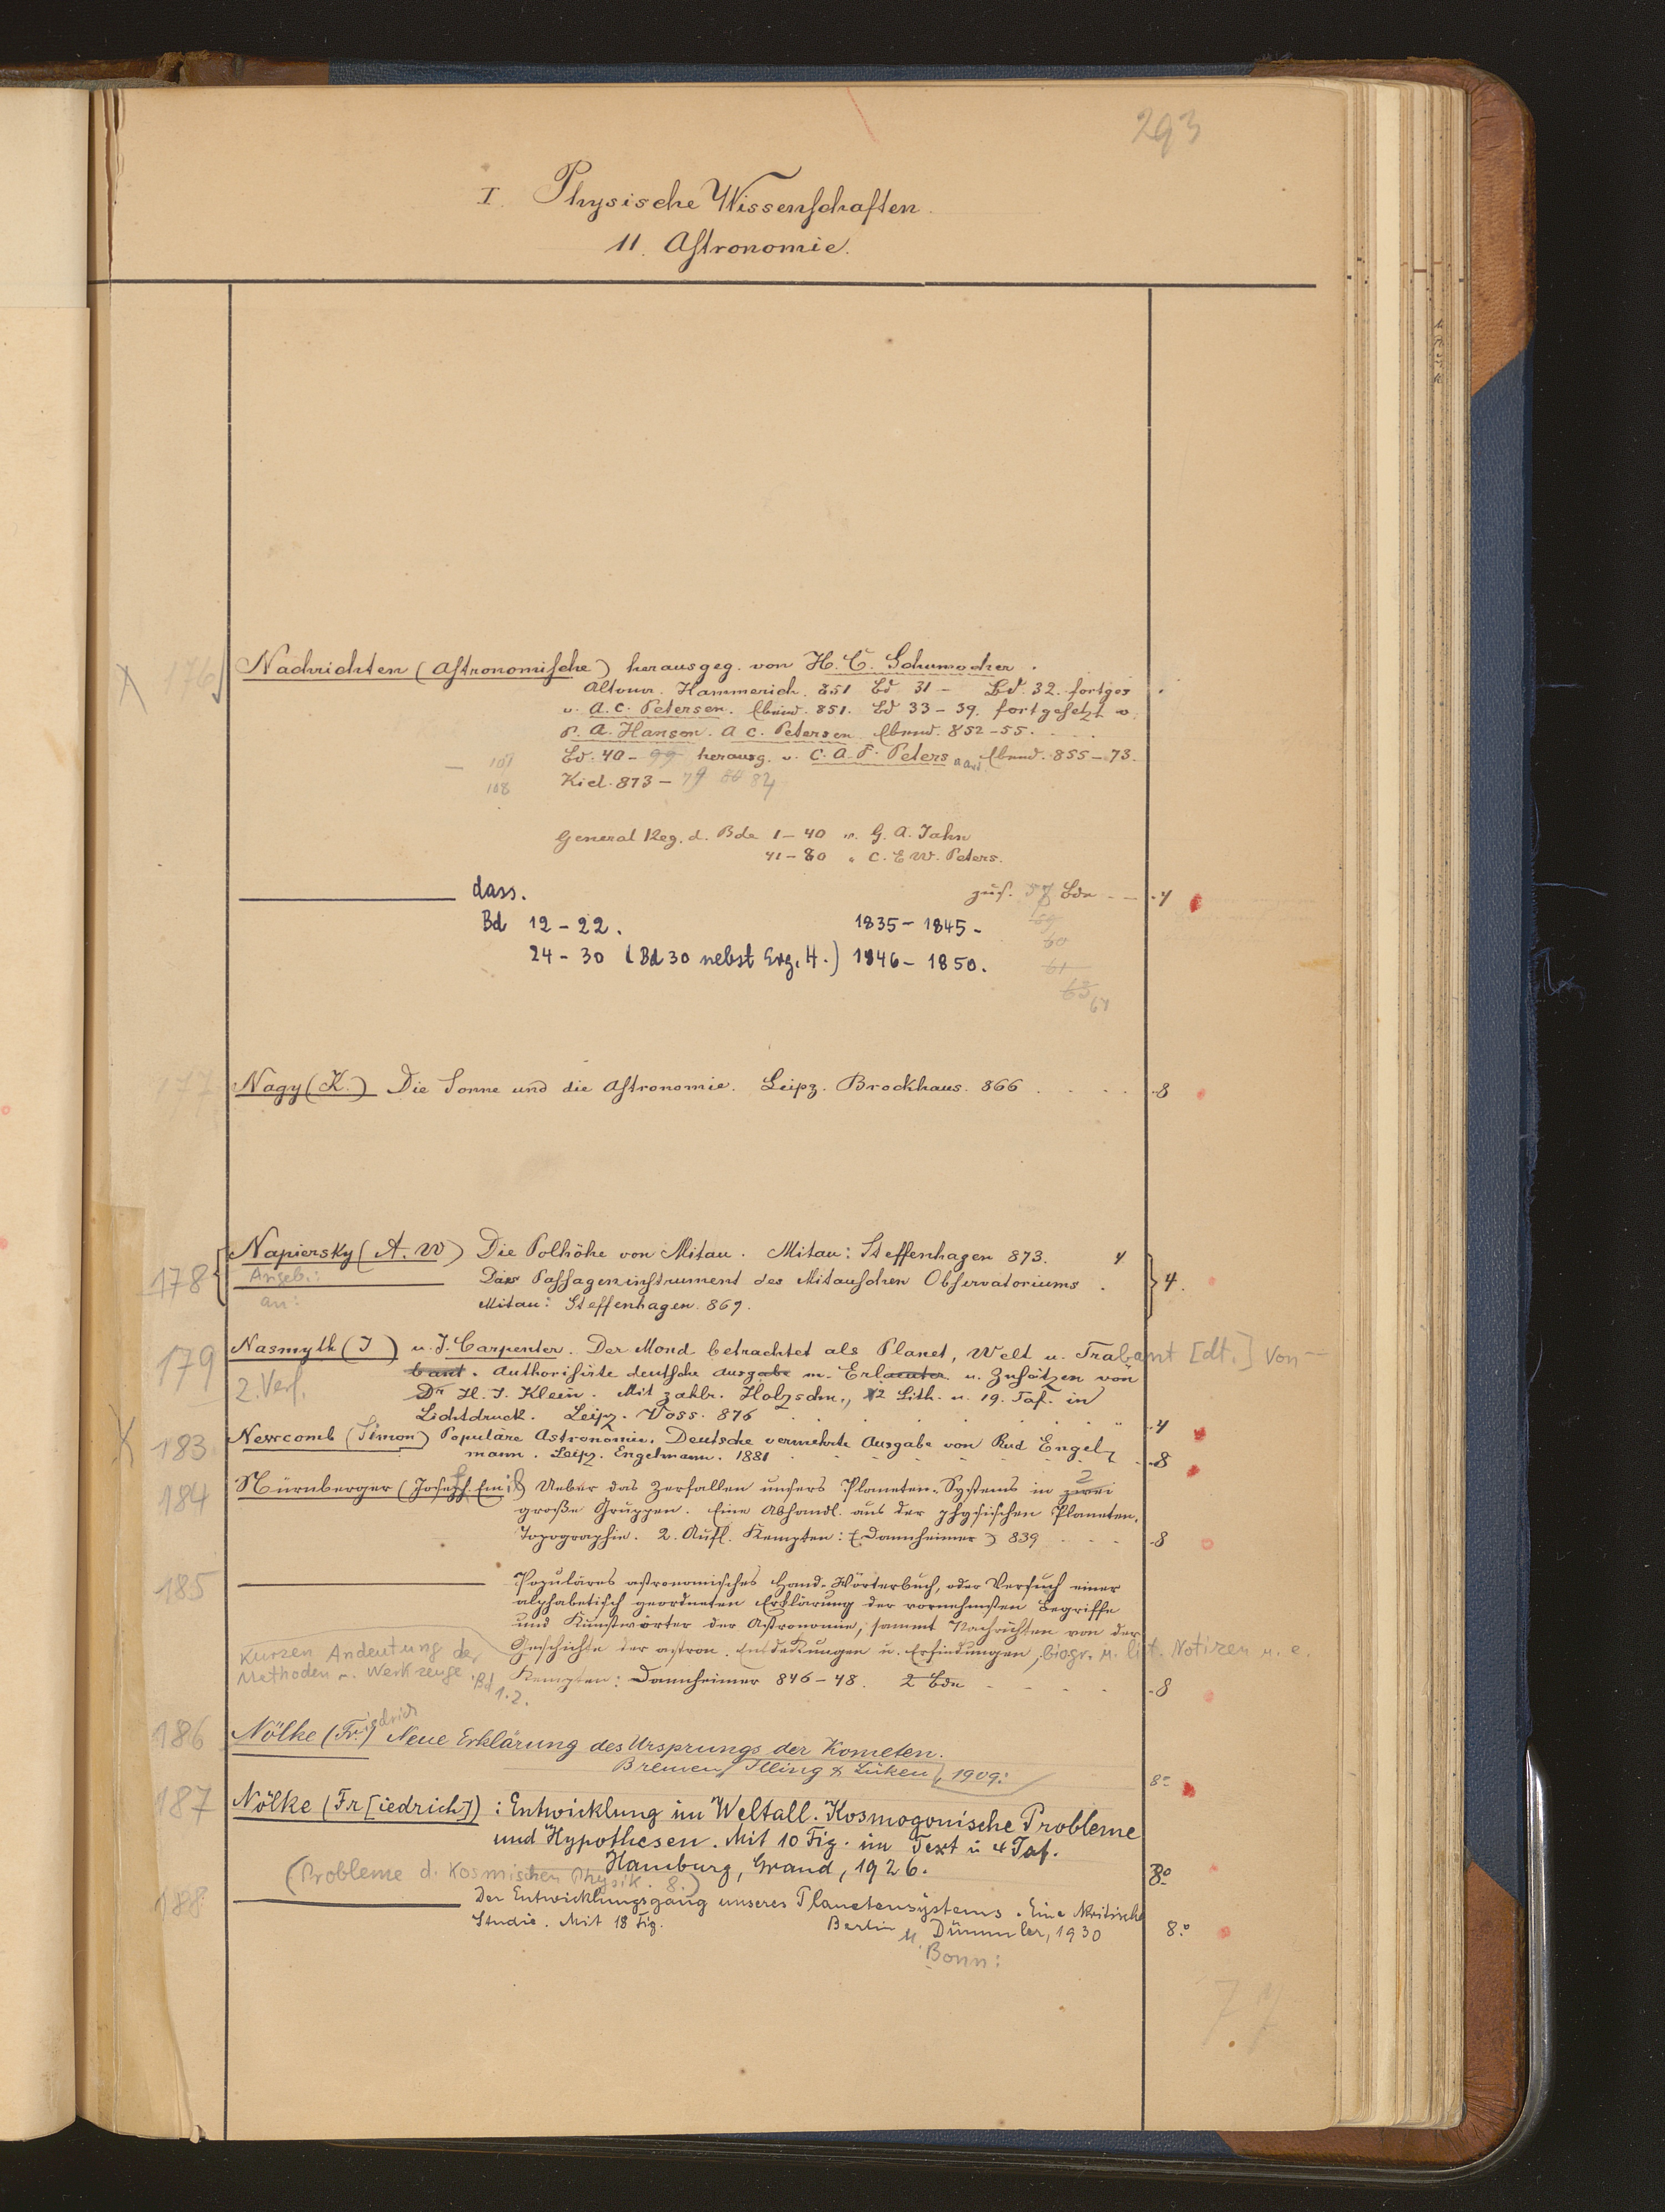 293
I. Physische Wissenschaften.
11. Astronomie.
176 Nachrichten (Astronomische) herausgeg. von H. C. Schumacher.
Altona. Hammerich. 851 Bd 31 - Bd. 32. fortges
v. A. C. Petersen. Ebend. 851. Bd 33-39. fortgesetzt v.
P. A. Hansen. A C. Petersen Ebend. 852-55.
101 Bd. 40-99 herausg. v. C. A. F. Peters Ebend. 855-73.
108 Kiel. 873-79 80 84
General Reg. d. Bde 1-40 v. G. A. Jahn
41-80 " C. F. W. Peters.
dass. zus. 57 Bde - - 4
Bd 12-22. 1835-1845. 59
60
24-30 (Bd 30 nebst Erg. H.) 1846-1850. 61
63 64
177 Nagy (K.) Die Sonne und die Astronomie. Leipz. Brockhaus. 866 . . . . 8
178 Napiersky (A. W) Die Polhöhe von Mitau. Mitau: Steffenhagen 873. 4
Angeb.: Das Passageninstrument des Mitauschen Observatoriums . 4.
an: Mitau: Steffenhagen. 869.
179 Nasmyth (J) u. J. Carpenter. Der Mond betrachtet als Planet, Welt u. Trabant [dt.] Von
2. Verf. bant. Authorisirte deutsche Ausgabe m. Erlaeuter u. Zusätzen von
Dr H. J. Klein. Mit zahlr. Holzschn., 2 Lith. u. 19. Taf. in
Lichtdruck. Leipz. Voss. 876 . . . . 4
183 Newcomb (Simon) Populäre Astronomie. Deutsche vermehrte Ausgabe von Rud Engel-
mann. Leipz. Engelmann. 1881 . . . . 8
184 Nürnberger (Joseph Emil) Ueber das Zerfallen unsers Planeten-Systems in zwei 2
große Gruppen. Eine Abhandl. aus der physischen Planeten-
Topographie. 2. Aufl. Kempten: (Dannheimer) 839 . . . . 8
185 Populäres astronomisches Hand-Wörterbuch, oder Versuch einer
alphabetisch geordneten Erklärung der vornehmsten Begriffe
und Kunstwörter der Astronomie, sammt Nachrichten von der
Geschichte der astron. Entdeckungen u. Erfindungen, biogr. u. lit. Notizen u. e.
kurzen Andeutung der
Methoden u. Werkzeuge. Bd 1.2. Kempten: Dannheimer 846-48. 2 Bde - - - - 8
186 Nölke (Friedrich) Neue Erklärung des Ursprungs der Kometen.
Bremen, Illing & Lüken, 1909. 8°
187 Nölke (Fr[iedrich]): Entwicklung im Weltall. Kosmogonische Probleme
und Hypothesen. Mit 10 Fig. im Text u 4 Taf.
Hamburg, Grand, 1926. 8°
(Probleme d. kosmischen Physik. 8.)
188 Der Entwicklungsgang unseres Planetensystems. Eine kritische
Studie. Mit 18 Fig. Berlin u. Dümmler, 1930 8°
Bonn: